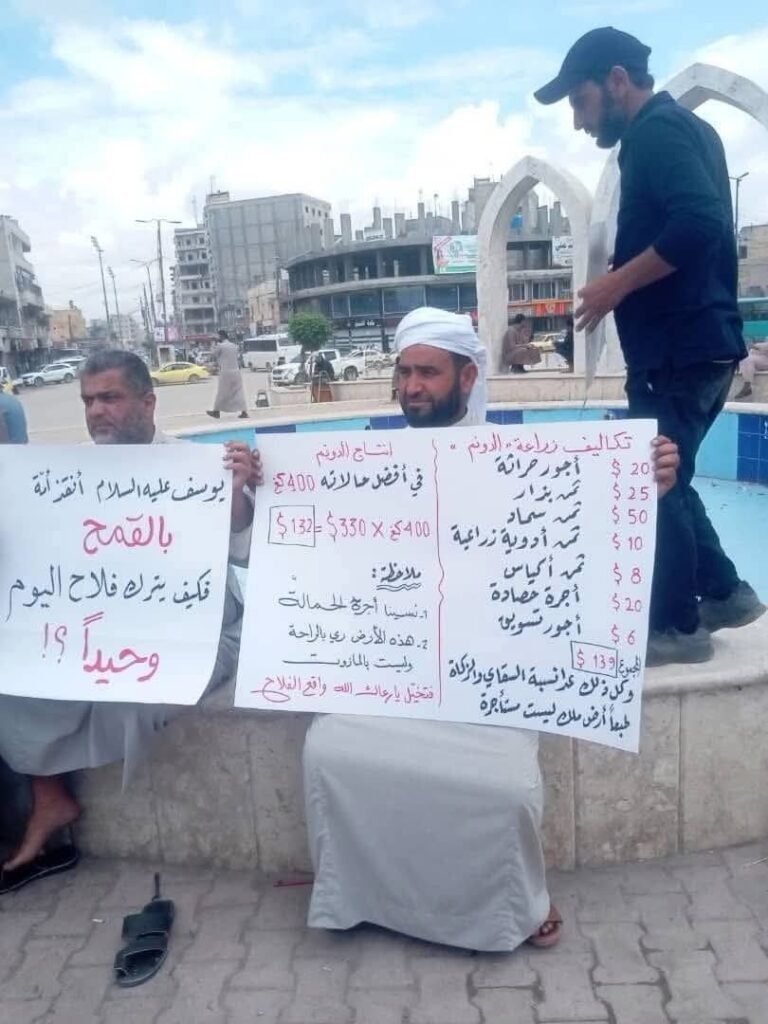 يوسف عليه السلام أنقذ أمّة
بالقمح
فكيف يترك فلاح اليوم
وحيداً ؟!
تكاليف زراعة "الدونم"
أجور حراثة 20 $
ثمن بذار 25 $
ثمن سماد 50 $
ثمن أدوية زراعية 10 $
ثمن أكياس 8 $
أجرة حصادة 20 $
أجور تسويق 6 $
المجموع 139 $
وكل ذلك عدا نسبة السقاي والزكاة
طبعاً أرض ملك ليست مستأجرة
انتاج الدونم
في أفضل حالاته 400 كغ
400 كغ X 330 $ = 132 $
ملاحظة:
1. نسينا أجرة الحمالة
2. هذه الأرض ري بالراحة
وليست بالمازوت
فتخيّل يا رعاك الله واقع الفلاح